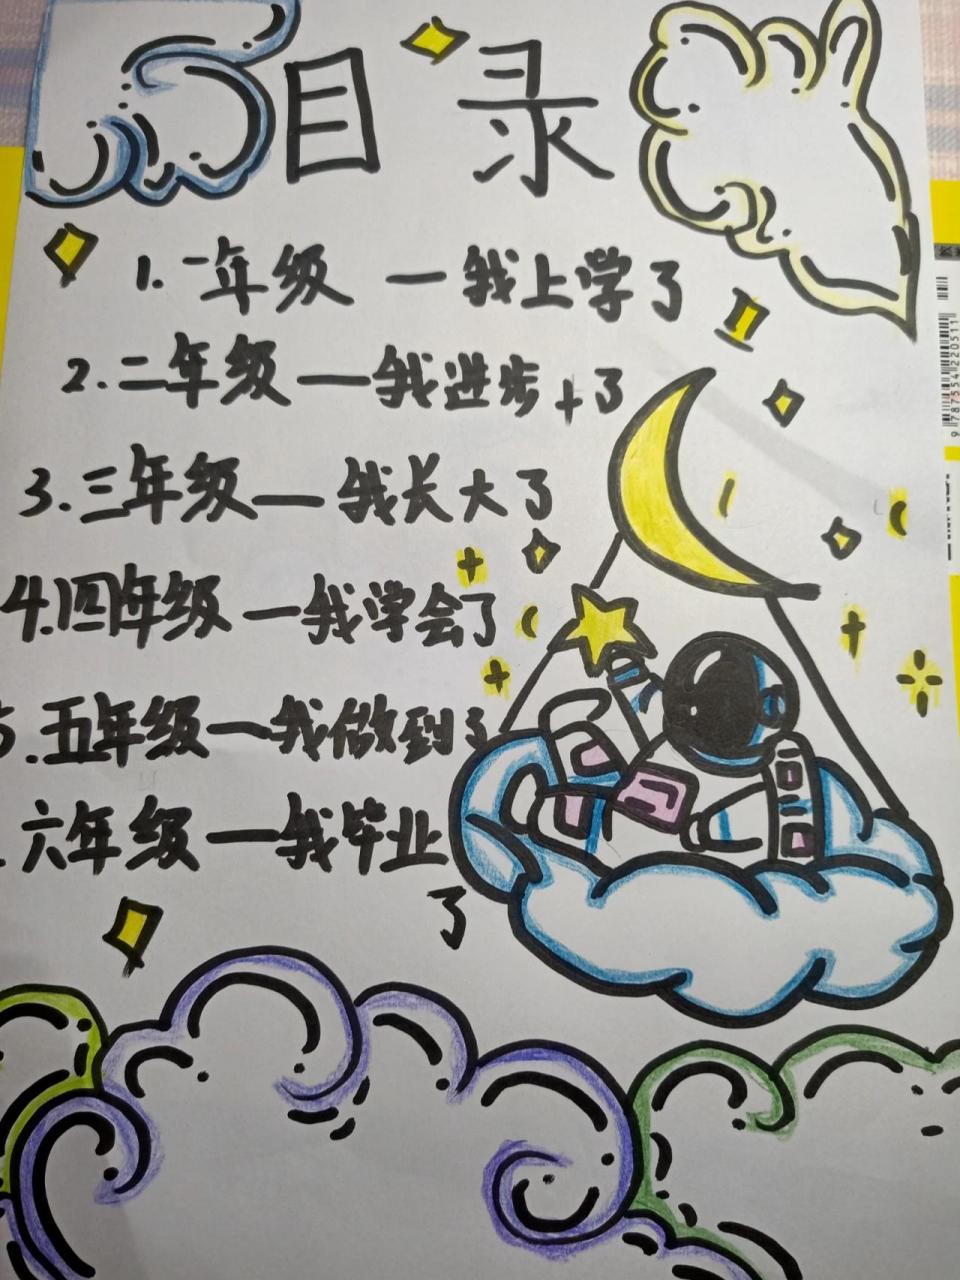 目录
1. 一年级 — 我上学了
2. 二年级 — 我进步了
3. 三年级 — 我长大了
4. 四年级 — 我学会了
5. 五年级 — 我做到了
. 六年级 — 我毕业
了
9787554220511